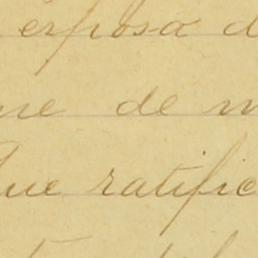 esposa d
ne de m
que ratific